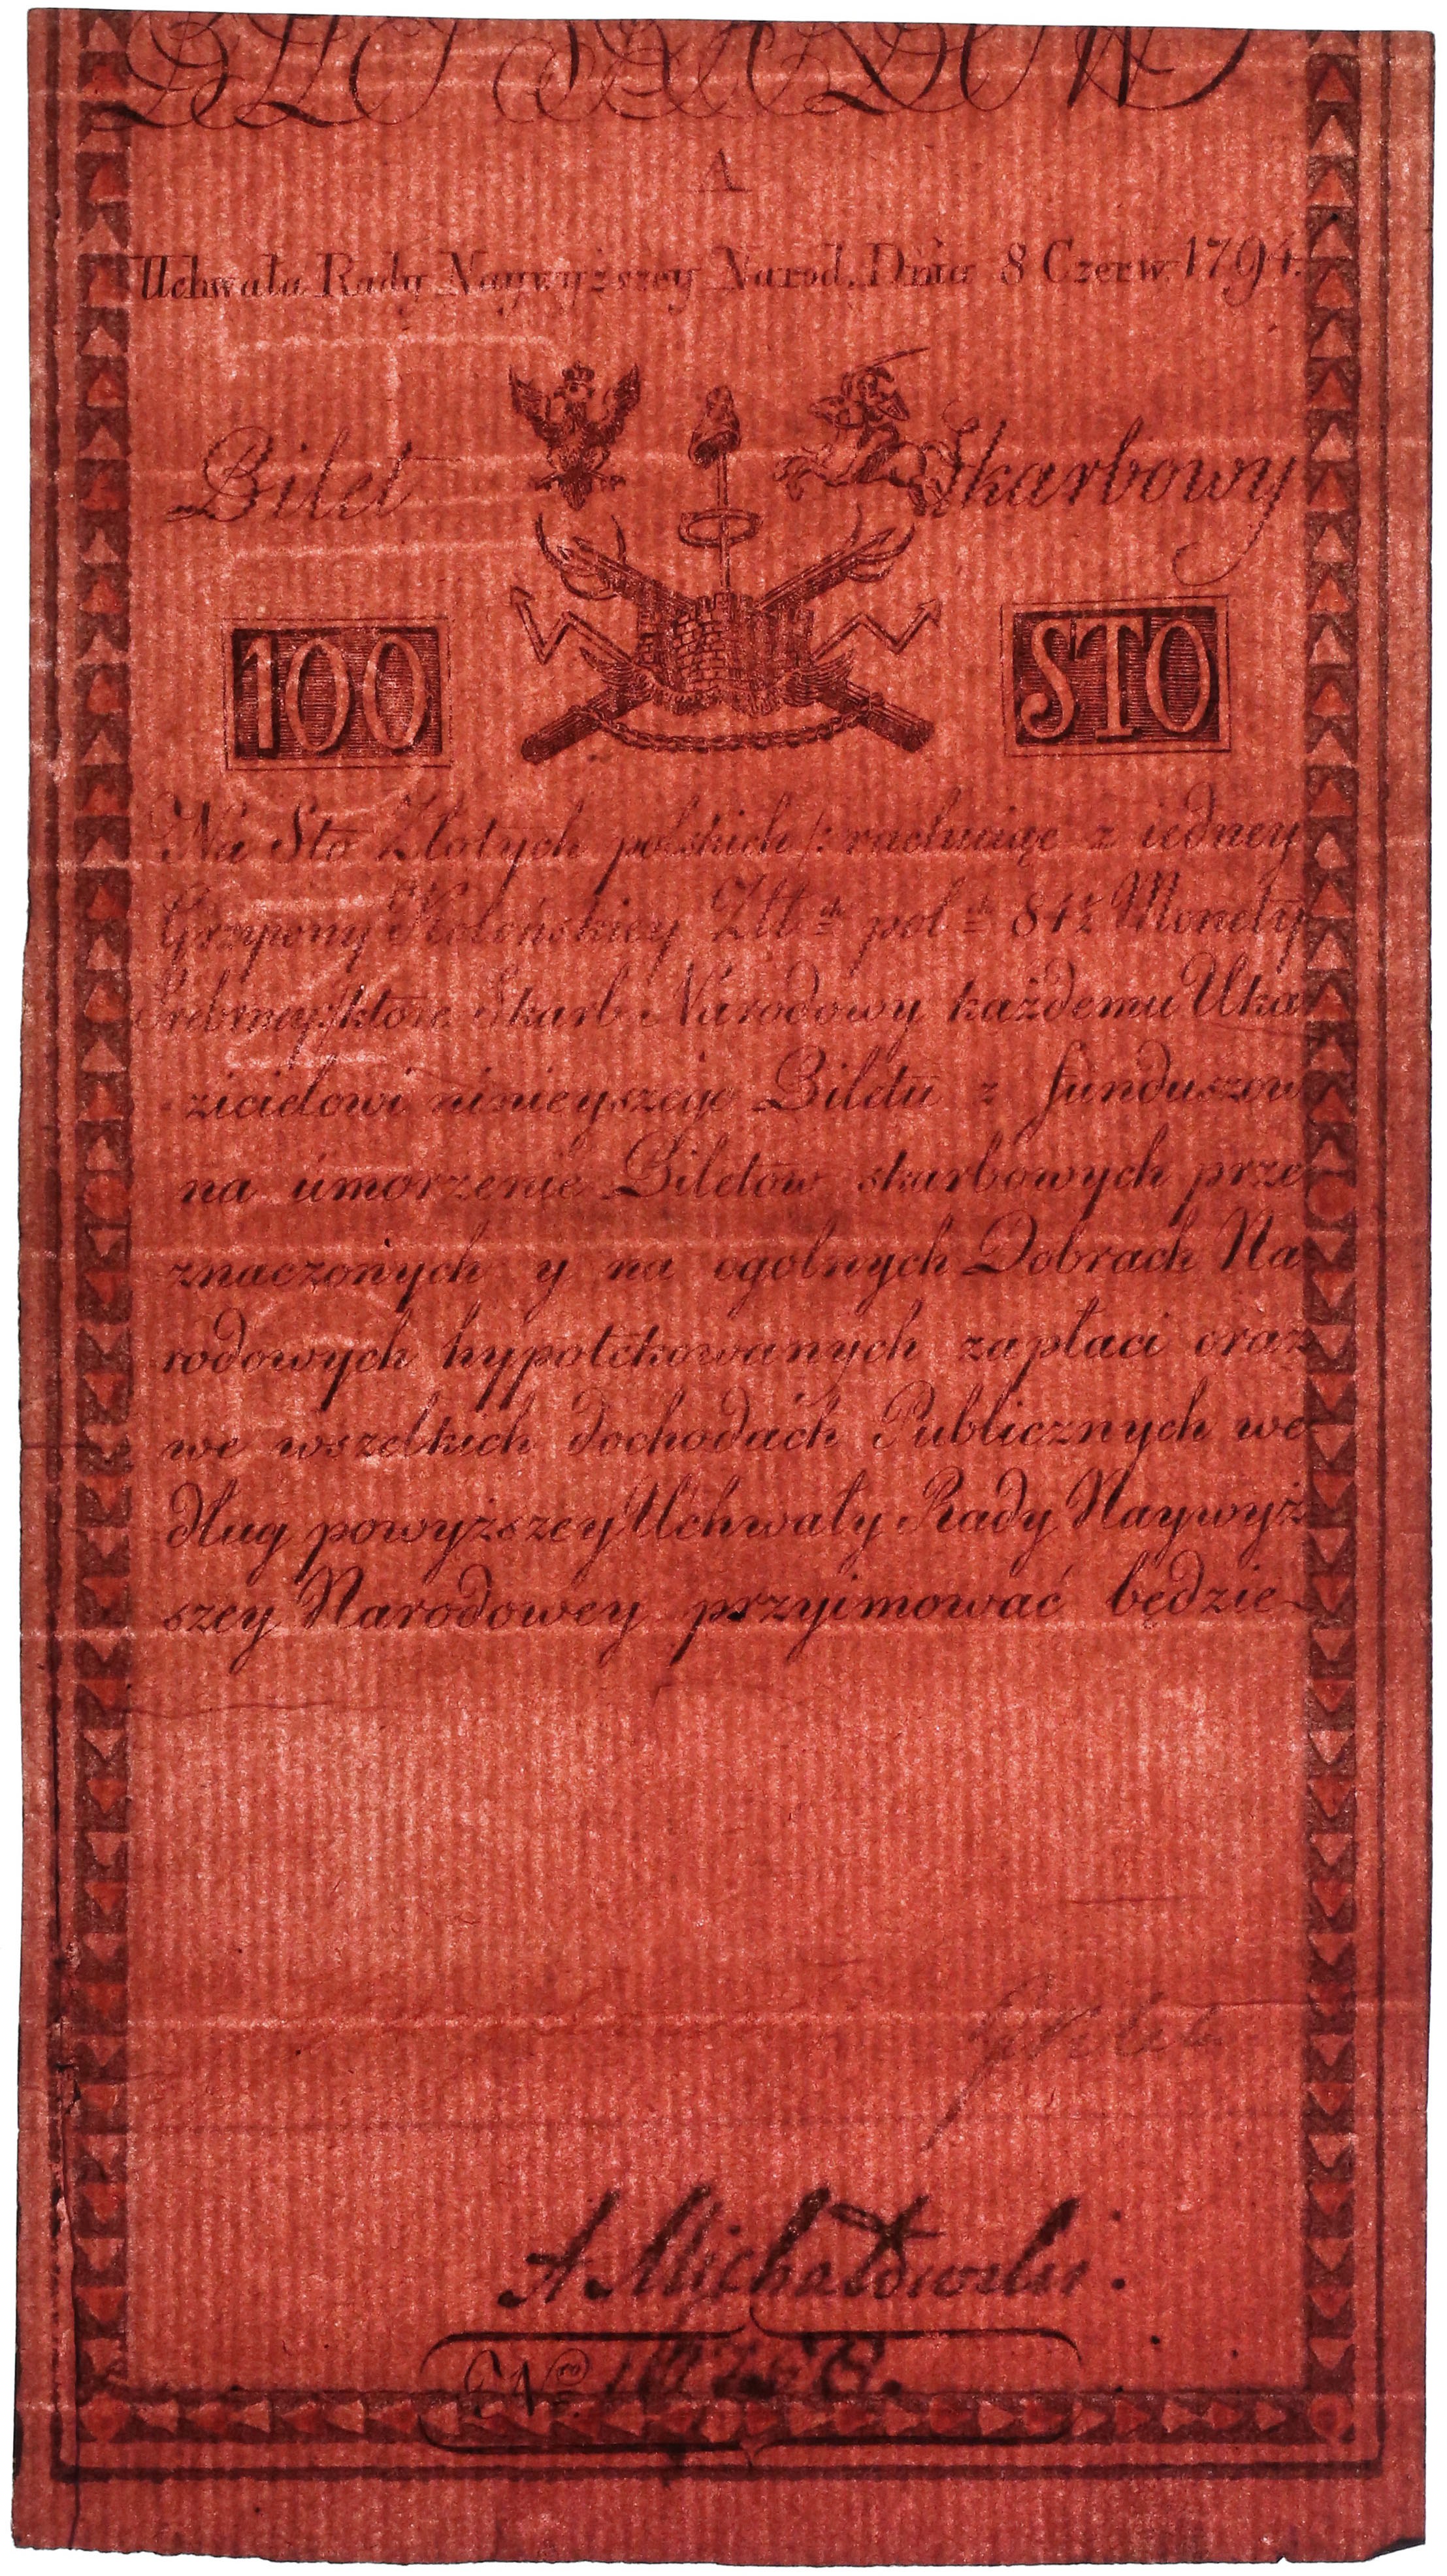 A
Uchwała Rady Naywyższey Narod. Dnia 8 Czerw. 1794.
Bilet Skarbowy
100 STO
Na Sto Złotych polskich /: rachuiąc z iedney
Grzywny Kolońskiey Złł: ch pol: ch 84½ Monety
Srebrney :/ które Skarb Narodowy każdemu Uka
zicielowi ninieyszego Biletu z funduszow
na umorzenie Biletow skarbowych prze
znaczonych y na ogolnych Dobrach Na
rodowych hypotekowanych zapłaci oraz
we wszelkich dochodach Publicznych we
dług powyższey Uchwały Rady Naywyż
szey Narodowey przyimować będzie
A Michałowski.
Nro